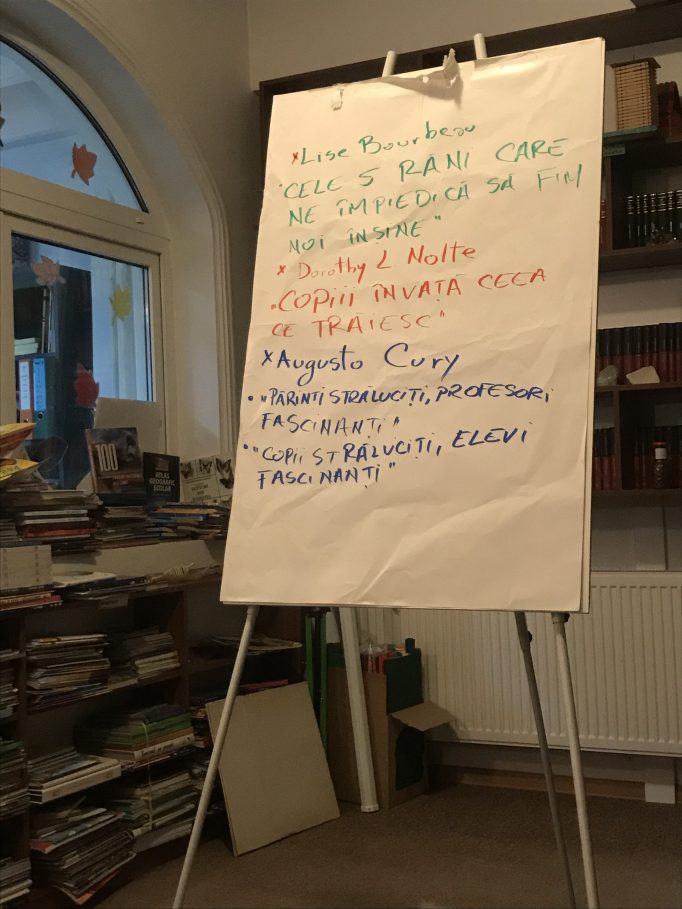 *Lise Bourbeau
"CELE 5 RĂNI CARE
NE ÎMPIEDICĂ SĂ FIM
NOI ÎNȘINE"
* Dorothy L Nolte
„COPIII ÎNVAȚĂ CEEA
CE TRĂIESC"
*Augusto Cury
• "PĂRINȚI STRĂLUCIȚI, PROFESORI
FASCINANȚI"
• "COPII STRĂLUCIȚI, ELEVI
FASCINANȚI"
100
ATLAS
GEOGRAFIC
ȘCOLAR